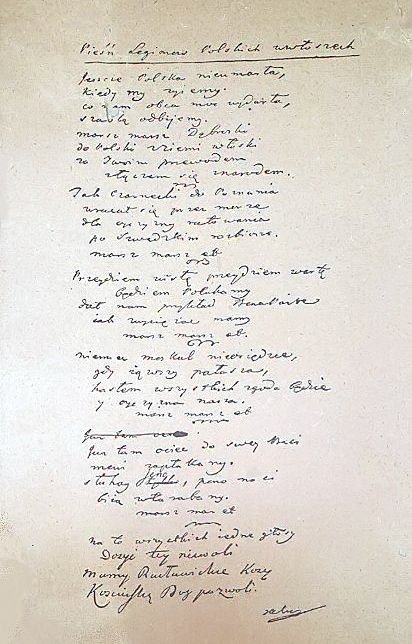 Pieśń Legionów Polskich we włoszech
Jeszcze Polska nieumarła,
kiedy my żyiemy.
co nam obca moc wydarła,
szablą odbijemy.
marsz marsz Dąbroski
do Polski z ziemi włoski
za Twoim przewodem
złączem się znarodem.
Jak Czarnecki do Poznania
wracał się przez morze
dla oyczyzny ratowania
po Szwedzkim rozbiorze.
marsz marsz etc
Przeydziem wisłę przeydziem wartę
będziem Polakamy
dał nam przykład Bonaparte
jak zwyciężać mamy
marsz marsz etc.
niemiec moskal nieosiędzie,
gdy iąwszy pałasza,
hasłem wszystkich zgoda będzie
y oyczyzna nasza.
marsz marsz etc
Juz tam ociec do swey Basi
mówi zapłakany.
słuchay jeno, pono nasi
biią w tarabany.
marsz mar etc
na to wszystkich iedne głosy
Dosyć tey niewoli
Mamy Racławickie Kosy
Kościuszkę Bóg pozwoli.